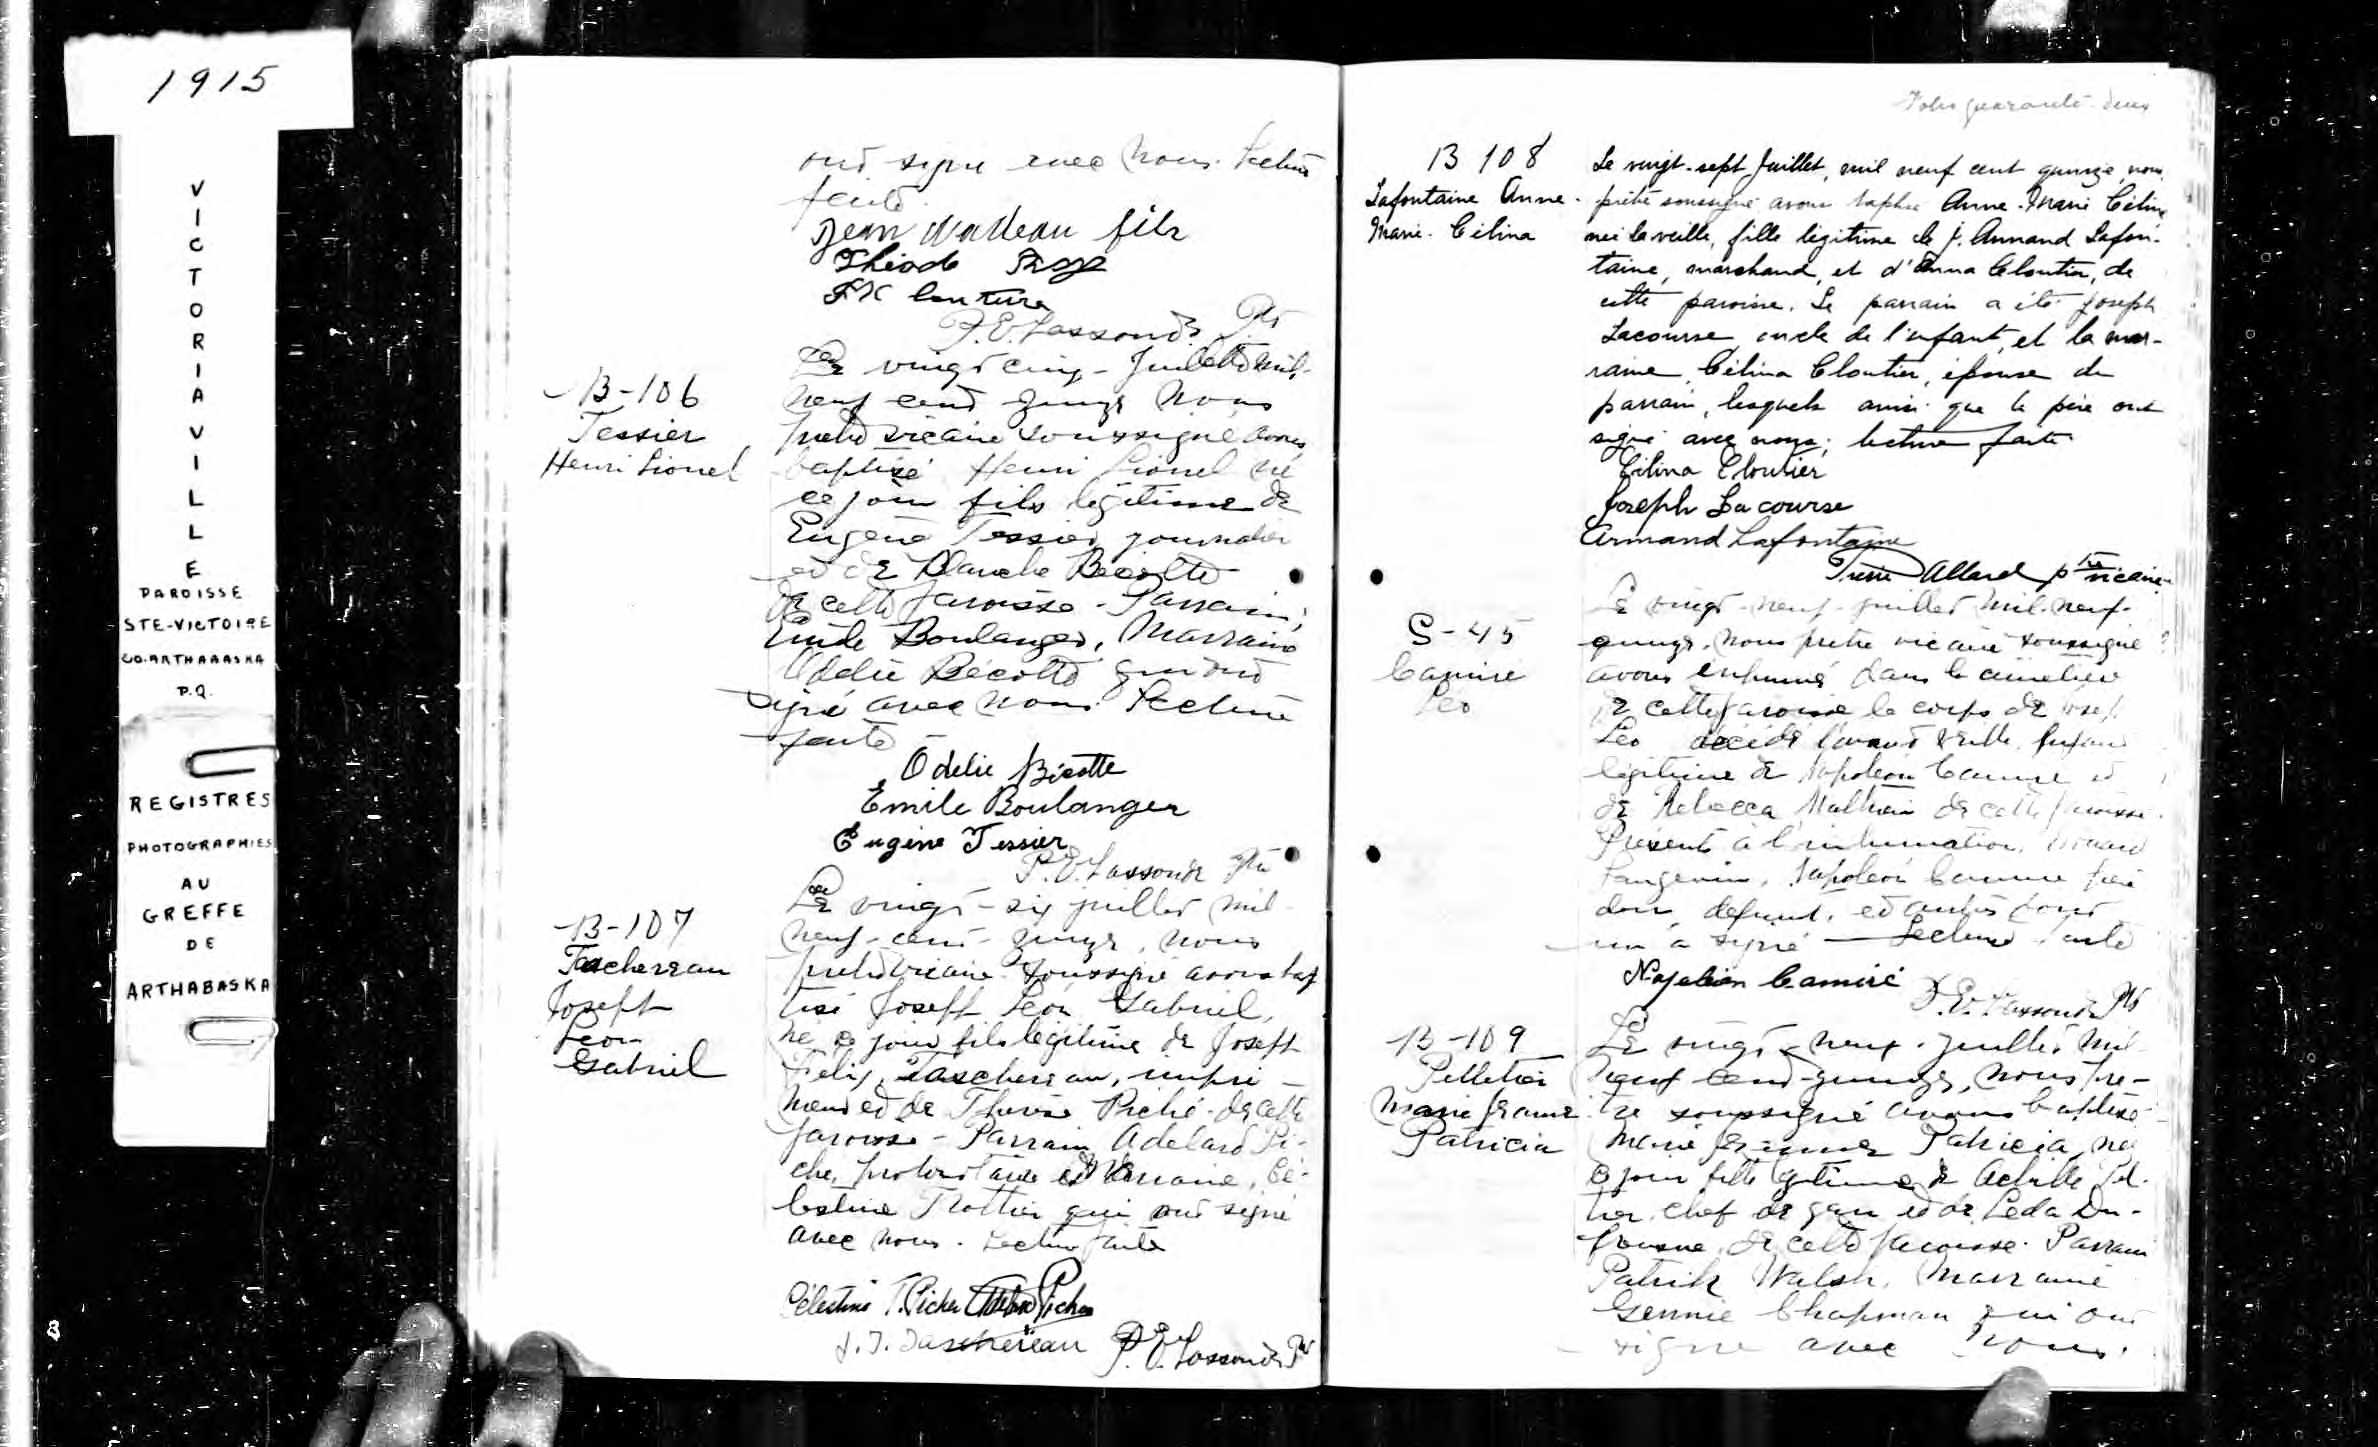 1915
VICTORIAVILLE
PAROISSE
STE-VICTOIRE
CO. ARTHABASKA
P.Q.
REGISTRES
PHOTOGRAPHIES
AU
GREFFE
DE
ARTHABASKA
8
ont signé avec nous. Lecture
faite.
Jean fils
P.E. Lassonde Ptr
B-106
Tessier
Henri Lionel
Le vingt cinq - Juillet mil-
neuf cent quinze nous
prêtre vicaire soussigné avons
baptisé Henri Lionel né
ce jour fils légitime de
Eugène Tessier journalier
et de Blanche Bécotte
de cette paroisse - Parrain,
Emile Boulanger, Marraine
Odelie Bécotte qui ont
signé avec nous. Lecture
faite -
Odelie Bécotte
Emile Boulanger
Eugène Tessier
P.E. Lassonde Ptr
B-107
Taschereau
Joseph
Léon
Gabriel
Le vingt-six juillet mil-
neuf-cent-quinze, nous
prêtre vicaire soussigné avons bap
tisé Joseph Léon Gabriel,
né ce jour fils légitime de Joseph
Félix Taschereau, impri-
meur et de Thérèse Piché de cette
paroisse - Parrain Adelard Pi-
ché, protonotaire et Marraine, Cé-
lestine Trottier qui ont signé
avec nous. Lecture faite
Célestine T. Picher Picher
J. F. Taschereau P.E. Lassonde Ptr
Folio quarante-deux
B 108
Lafontaine Anne-
Marie-Célina
Le vingt-sept Juillet, mil neuf cent quinze, nous,
prêtre soussigné avons baptisé Anne-Marie Célina
née la veille, fille légitime de J. Armand Lafon-
taine, marchand, et d'Anna Cloutier, de
cette paroisse. Le parrain a été Joseph
Lacourse, oncle de l'enfant, et la mar-
raine, Célina Cloutier, épouse du
parrain, lesquels ainsi que le père ont
signé avec nous; lecture faite.
Célina Cloutier
Joseph Lacourse
Armand Lafontaine
Allard ptre vicaire
S-45
Camiré
Léo
Le vingt-neuf-juillet mil-neuf-
quinze, nous prêtre vicaire soussigné
avons inhumé dans le cimetière
de cette paroisse le corps de Joseph
Léo décédé l'avant veille, enfant
légitime de Napoléon Camiré et
de Rebecca de cette paroisse.
Présents à l'inhumation,
Langevin, Napoléon Camiré père
du défunt, et autres dont
un a signé - Lecture faite
Napoléon Camiré
P.E. Lassonde Ptr
B-109
Pelletier
Marie Jeanne
Patricia
Le vingt-neuf-juillet mil-
neuf cent-quinze, nous prê-
tre soussigné avons baptisé
Marie Jeanne Patricia, née
ce jour fille légitime de Achille Pel-
tier, chef de gare et de Léda Du-
fresne, de cette paroisse. Parrain
Patrik Walsh, Marraine
Gennie Chapman qui ont
signé avec nous.